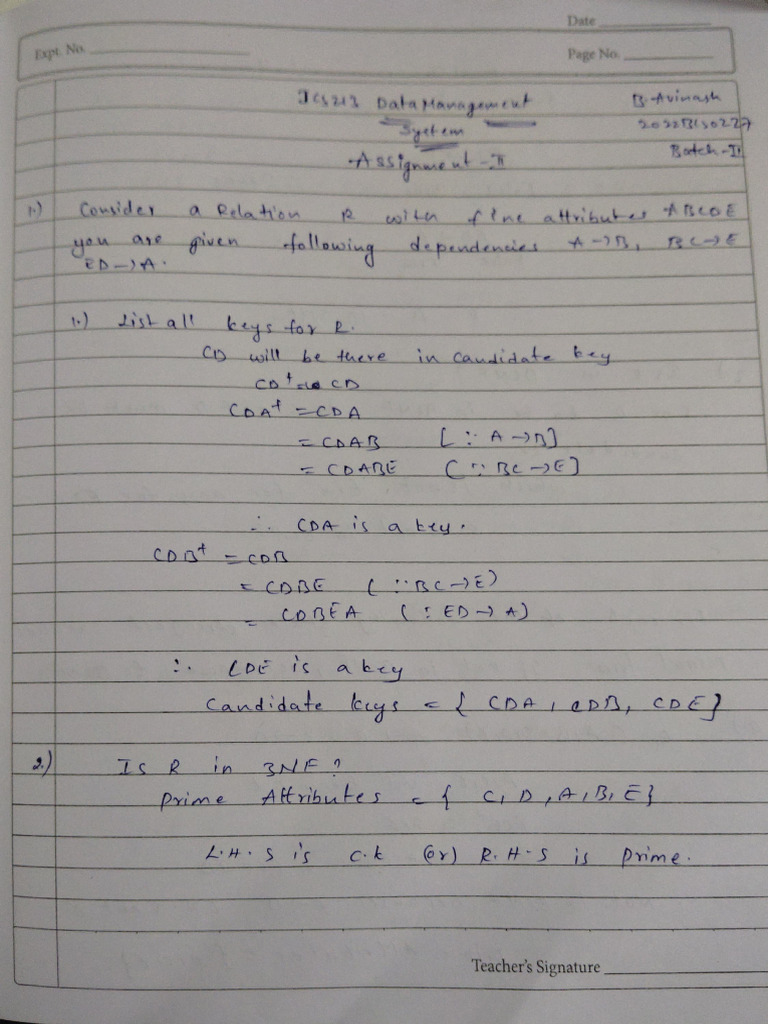 Date
Expt. No.
Page No.
ICS213 Data Management B. Avinash
System 2022BIS0227
Batch-II
Assignment-II
1.) Consider a Relation R with five attributes ABCDE
you are given following dependencies A→B, BC→E
ED→A.
1.) List all keys for R.
CD will be there in candidate key
CD⁺ = CD
CDA⁺ = CDA
= CDAB [∵ A→B]
= CDABE [∵ BC→E]
∴ CDA is a key.
CDB⁺ = CDB
= CDBE (∵ BC→E)
= CDBEA (∵ ED→A)
∴ CDE is a key
Candidate keys = { CDA, CDB, CDE}
2.) Is R in 3NF?
Prime Attributes = { C, D, A, B, E}
L.H.S is C.K (or) R.H.S is prime.
Teacher's Signature